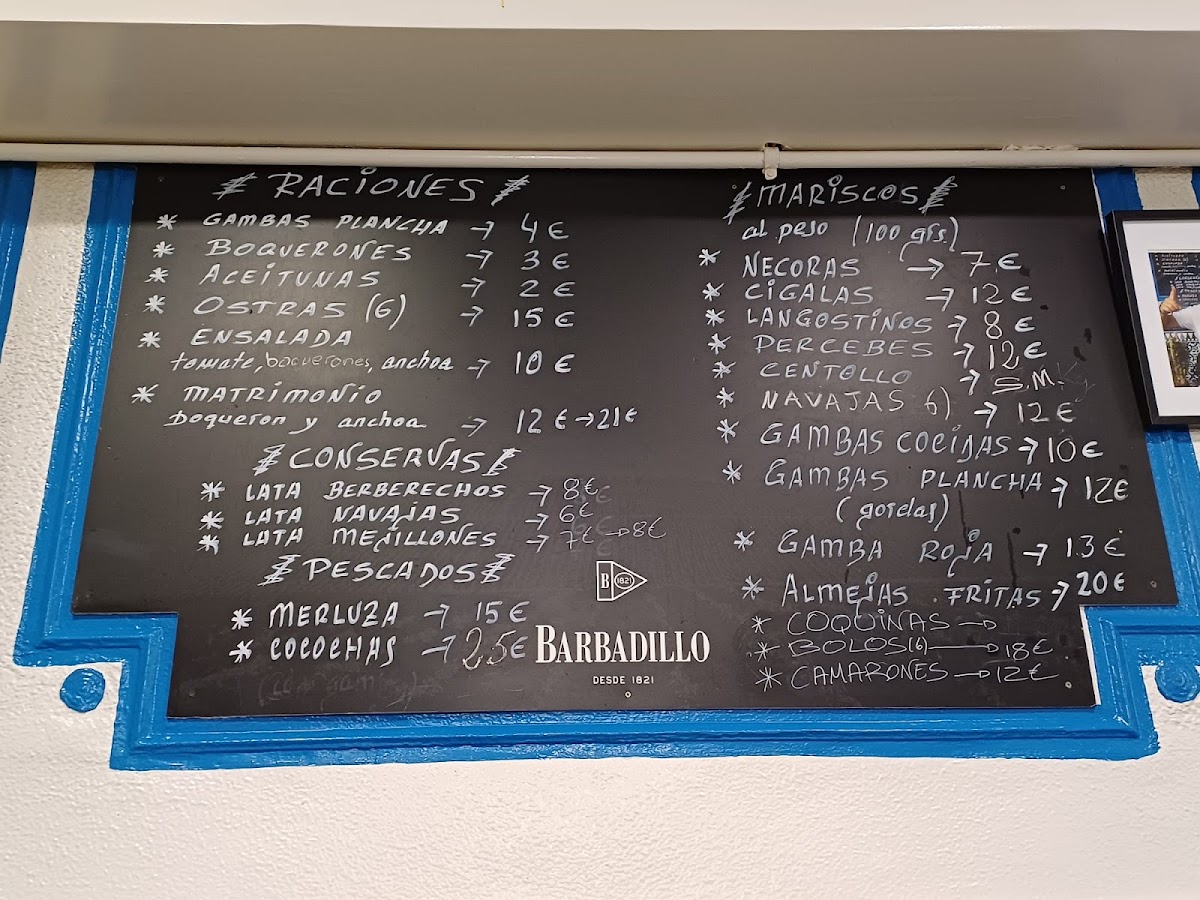 RACIONES
* GAMBAS PLANCHA → 4€
* BOQUERONES → 3€
* ACEITUNAS → 2€
* OSTRAS (6) → 15€
* ENSALADA
tomate, boquerones, anchoa → 10€
* MATRIMONIO
boqueron y anchoa → 12€→21€
CONSERVAS
* LATA BERBERECHOS → 8€
* LATA NAVAJAS → 6€
* LATA MEJILLONES → 7€→8€
PESCADOS
* MERLUZA → 15€
* COCOCHAS → 25€
B 1821
BARBADILLO
DESDE 1821
MARISCOS
al peso (100 grs.)
* NECORAS → 7€
* CIGALAS → 12€
* LANGOSTINOS → 8€
* PERCEBES → 12€
* CENTOLLO → S.M.
* NAVAJAS 6) → 12€
* GAMBAS COCIDAS → 10€
* GAMBAS PLANCHA → 12€
(gordas)
* GAMBA ROJA → 13€
* ALMEJAS FRITAS → 20€
* COQUINAS →
* BOLOS(6) → 18€
* CAMARONES → 12€